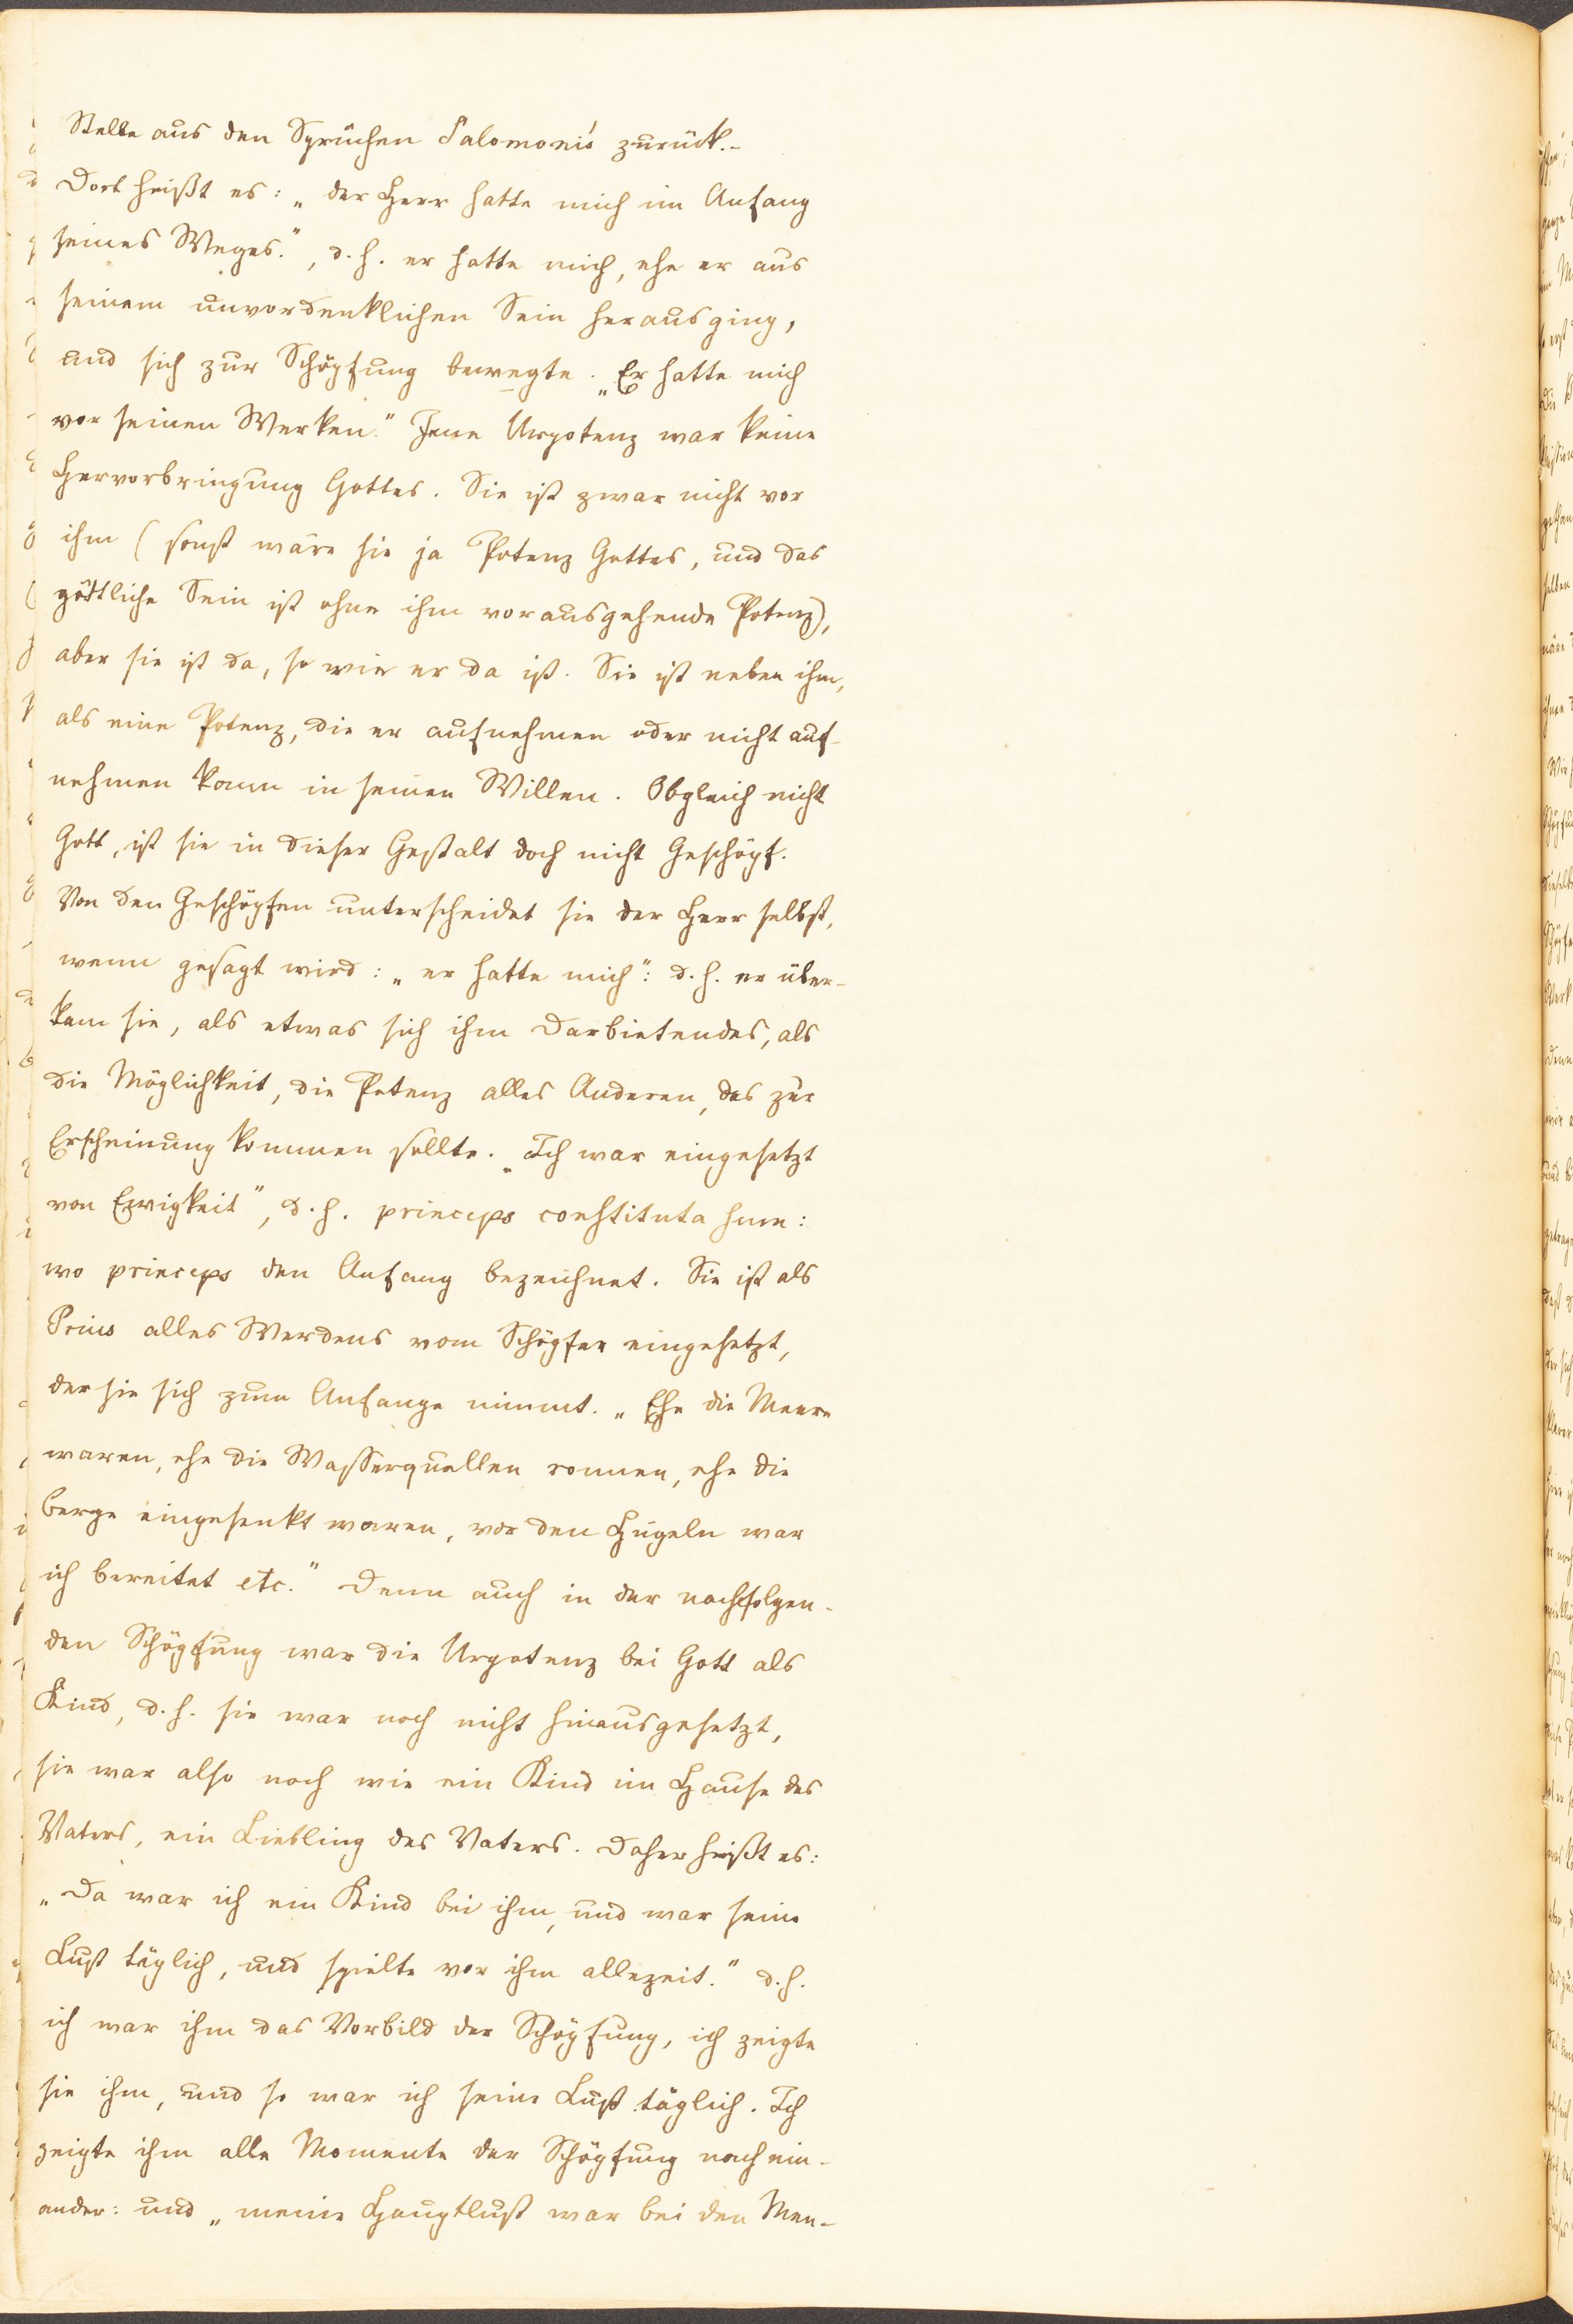 Stelle aus den Sprüchen Salomonis zurück.-
Dort heißt es: „der Herr hatte mich im Anfang
seines Weges.", d.h. er hatte mich, ehe er aus
seinem unvordenklichen Sein herausging,
und sich zur Schöpfung bewegte. „Er hatte mich
vor seinen Werken." Jene Urpotenz war keine
Hervorbringung Gottes. Sie ist zwar nicht vor
ihm (sonst wäre sie ja Potenz Gottes, und das
göttliche Sein ist ohne ihm vorausgehende Potenz),
aber sie ist da, so wie er da ist. Sie ist neben ihm,
als eine Potenz, die er aufnehmen oder nicht auf-
nehmen kann in seinen Willen. Obgleich nicht
Gott, ist sie in dieser Gestalt doch nicht Geschöpf.
Von den Geschöpfen unterscheidet sie der Herr selbst,
wenn gesagt wird: „er hatte mich": d.h. er über-
kam sie, als etwas sich ihm Darbietendes, als
die Möglichkeit, die Potenz alles Anderen, das zur
Erscheinung kommen sollte. „Ich war eingesetzt
von Ewigkeit", d.h. princeps constituta sum:
wo princeps den Anfang bezeichnet. Sie ist als
Prius alles Werdens vom Schöpfer eingesetzt,
der sie sich zum Anfange nimmt. „Ehe die Meere
waren, ehe die Wasserquellen ronnen, ehe die
berge eingesenkt waren, vor den Hügeln war
ich bereitet etc." Denn auch in der nachfolgen-
den Schöpfung war die Urpotenz bei Gott als
Kind, d.h. sie war noch nicht hinausgesetzt,
sie war also noch wie ein Kind im Hause des
Vaters, ein Liebling des Vaters. Daher heißt es:
„Da war ich ein Kind bei ihm, und war seine
Lust täglich, und spielte vor ihm allezeit." d.h.
ich war ihm das Vorbild der Schöpfung, ich zeigte
sie ihm, und so war ich seine Lust täglich. Ich
zeigte ihm alle Momente der Schöpfung nachein-
ander: und „meine Hauptlust war bei den Men-